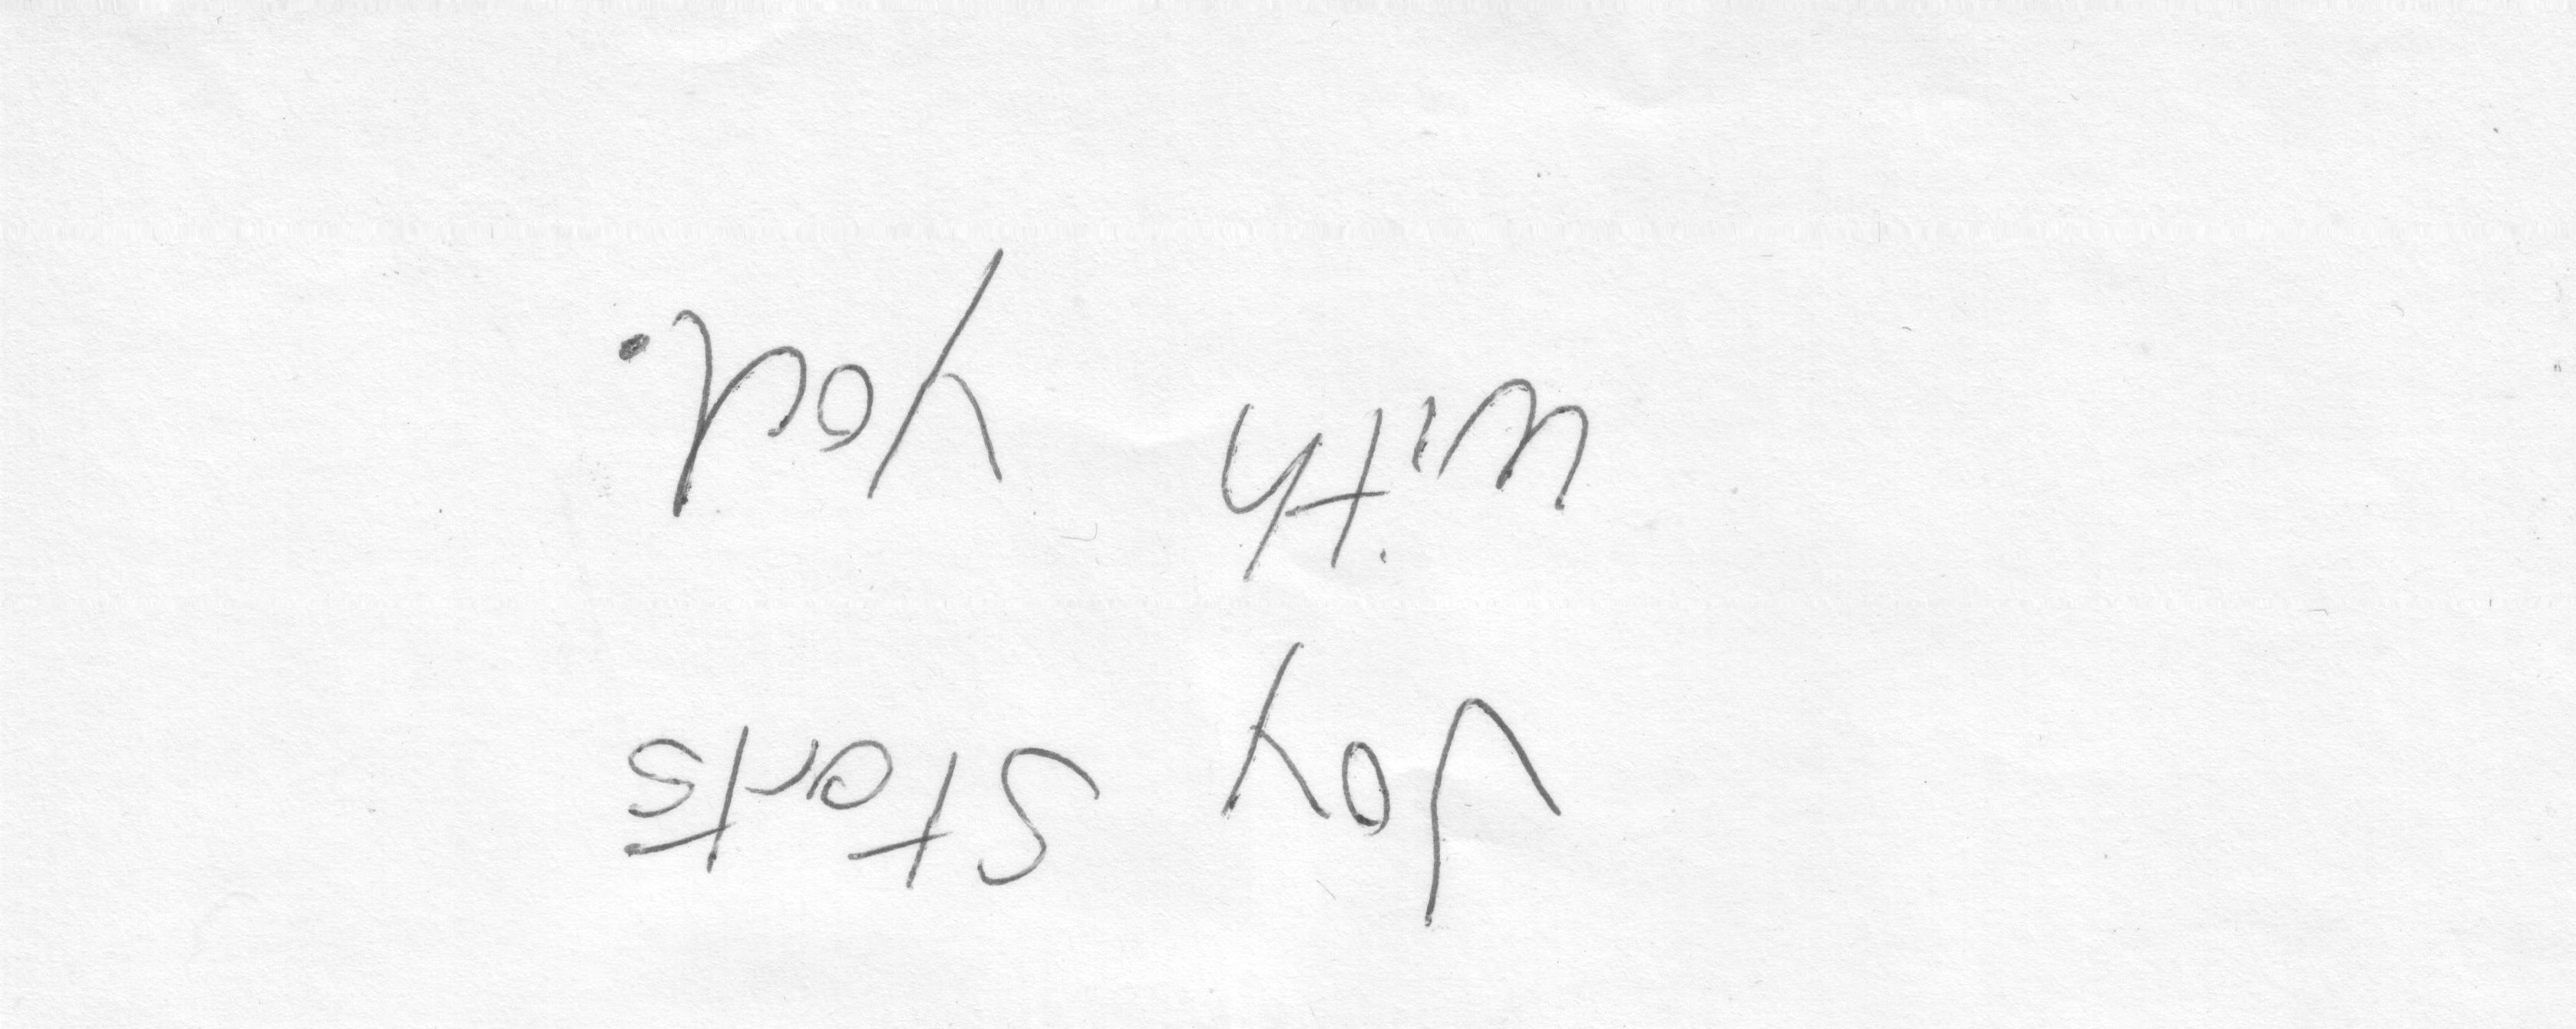 Joy Starts
with you.